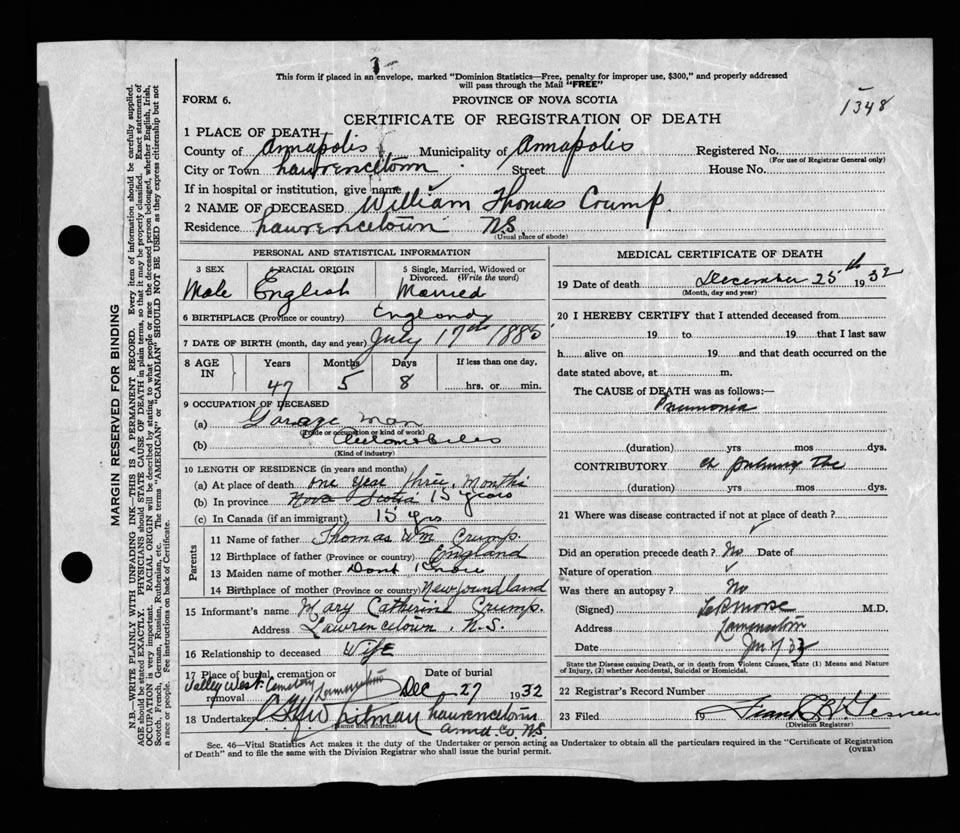 This form if placed in an envelope, marked "Dominion Statistics—Free, penalty for improper use, $300," and properly addressed
will pass through the Mail "FREE"
FORM 6.
PROVINCE OF NOVA SCOTIA
1348
CERTIFICATE OF REGISTRATION OF DEATH
1 PLACE OF DEATH
County of Annapolis Municipality of Annapolis Registered No.
(For use of Registrar General only)
City or Town Lawrencetown Street House No.
If in hospital or institution, give name
2 NAME OF DECEASED William Thomas Crump.
Residence Lawrencetown N.S.
(Usual place of abode)
PERSONAL AND STATISTICAL INFORMATION
3 SEX 4 RACIAL ORIGIN 5 Single, Married, Widowed or Divorced. (Write the word)
Male English Married
6 BIRTHPLACE (Province or country) England
7 DATE OF BIRTH (month, day and year) July 17th 1885
8 AGE IN Years Months Days If less than one day,
47 5 8 hrs. or min.
9 OCCUPATION OF DECEASED
(a) Garage Man
(Trade or occupation or kind of work)
(b) Automobiles
(Kind of industry)
10 LENGTH OF RESIDENCE (in years and months)
(a) At place of death one year three months
(b) In province Nova Scotia 15 years
(c) In Canada (if an immigrant) 15 yrs
Parents
11 Name of father Thomas Wm Crump.
12 Birthplace of father (Province or country) England
13 Maiden name of mother Dont Know
14 Birthplace of mother (Province or country) Newfoundland
15 Informant's name Mary Catherine Crump.
Address Lawrencetown, N.S.
16 Relationship to deceased Wife
17 Place of burial, cremation or removal Valley West Cemetery Lawrencetown
Date of burial Dec 27 1932
18 Undertaker Whitman Lawrencetown
Name and address
Anna. Co. N.S.
MEDICAL CERTIFICATE OF DEATH
19 Date of death December 25th 1932
(Month, day and year)
20 I HEREBY CERTIFY that I attended deceased from
19 to 19 that I last saw
h alive on 19 and that death occurred on the
date stated above, at m.
The CAUSE of DEATH was as follows:—
Pneumonia
(duration) yrs mos dys.
CONTRIBUTORY
(duration) yrs mos dys.
21 Where was disease contracted if not at place of death?
Did an operation precede death? No Date of
Nature of operation
Was there an autopsy? No
(Signed) Morse M.D.
Address Lawrencetown
Date Jan 33
State the Disease causing Death, or in death from Violent Causes, state (1) Means and Nature of Injury, (2) whether Accidental, Suicidal or Homicidal.
22 Registrar's Record Number
23 Filed 19 Frank
(Division Registrar)
Sec. 46—Vital Statistics Act makes it the duty of the Undertaker or person acting as Undertaker to obtain all the particulars required in the "Certificate of Registration
of Death" and to file the same with the Division Registrar who shall issue the burial permit.
(OVER)
MARGIN RESERVED FOR BINDING
N.B.—WRITE PLAINLY WITH UNFADING INK—THIS IS A PERMANENT RECORD. Every item of information should be carefully supplied.
AGE should be stated EXACTLY. PHYSICIANS should STATE CAUSE OF DEATH in plain terms, so that it may be properly classified. Exact statement of
OCCUPATION is very important. RACIAL ORIGIN will be described by stating to what people or race the deceased person belonged, whether English, Irish,
Scotch, French, German, Russian, Ruthenian, etc. The terms "AMERICAN" or "CANADIAN" SHOULD NOT BE USED as they express citizenship but not
a race or people. See instructions on back of Certificate.